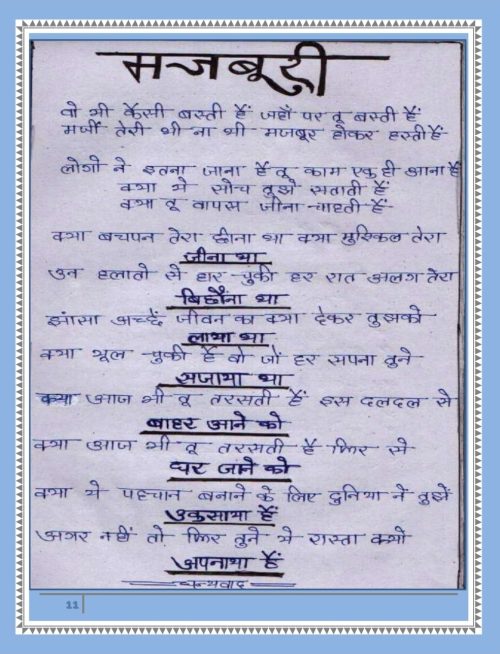 मजबूरी
वो भी कैसी बस्ती हैं जहाँ पर तू बस्ती हैं
मर्जी तेरी थी ना थी मजबूर होकर हस्ती हैं
लोगो ने इतना जाना हैं तू काम एक ही आना हैं
क्या ये सोच तुझे सताती हैं
क्या तू वापस जीना चाहती हैं
क्या बचपन तेरा छीना था क्या मुश्किल तेरा
जीना था
उन हलातो से हार चुकी हर रात अलग तेरा
बिछौना था
झांसा अच्छें जीवन का क्या देकर तुझको
लाया था
क्या भूल चुकी हैं वो जों हर सपना तुने
सजाया था
क्या आज भी तू तरसती हैं इस दलदल से
बाहर आने को
क्या आज भी तू तरसती हैं फिर से
घर जाने को
क्या ये पहचान बनाने के लिए दुनिया ने तुझें
उकसाया हैं
अगर नहीं तो फिर तुने ये रास्ता क्यों
अपनाया हैं
धन्यवाद
11